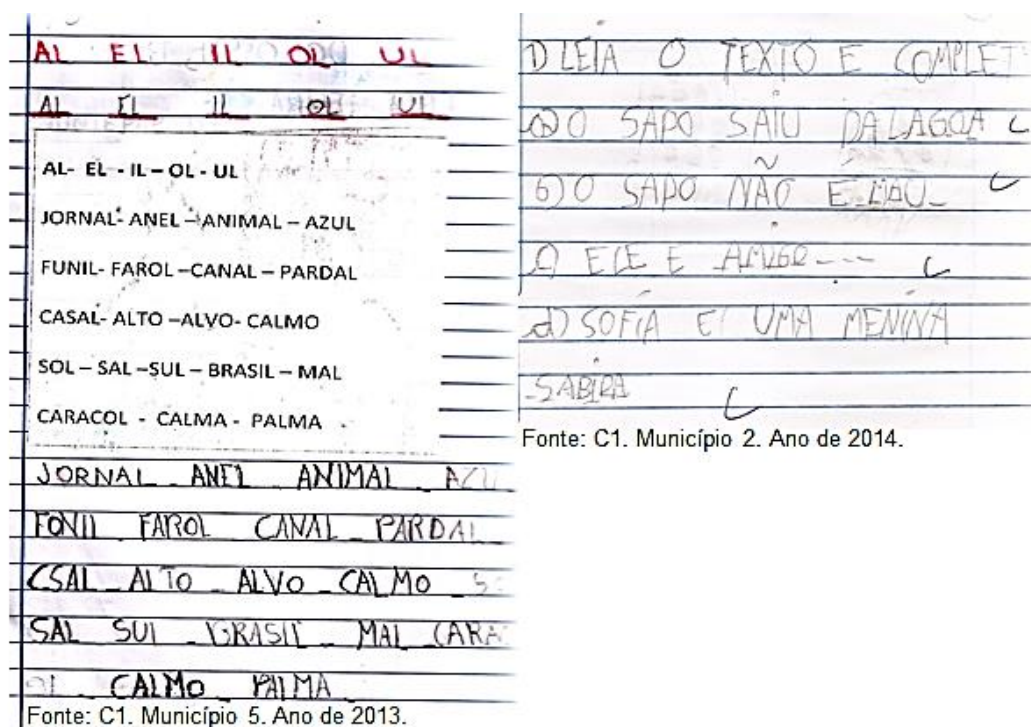 AL EL IL OL UL
AL EL IL OL UL
AL- EL - IL – OL - UL
JORNAL- ANEL – ANIMAL – AZUL
FUNIL- FAROL –CANAL – PARDAL
CASAL- ALTO –ALVO- CALMO
SOL – SAL –SUL – BRASIL – MAL
CARACOL - CALMA - PALMA
JORNAL - ANEL ANIMAL - AZU
FONIL FAROL CANAL - PARDAL
CSAL - ALTO - ALVO - CALMO - S
SAL SUL - BRASIL - MAL CARA
OL - CALMO PALMA
Fonte: C1. Município 5. Ano de 2013.
1) LEIA O TEXTO E COMPLET
a) O SAPO SAIU DA LAGOA
b) O SAPO NÃO E
C) ELE E AMIGO ---
d) SOFIA E UMA MENINA
Fonte: C1. Município 2. Ano de 2014.